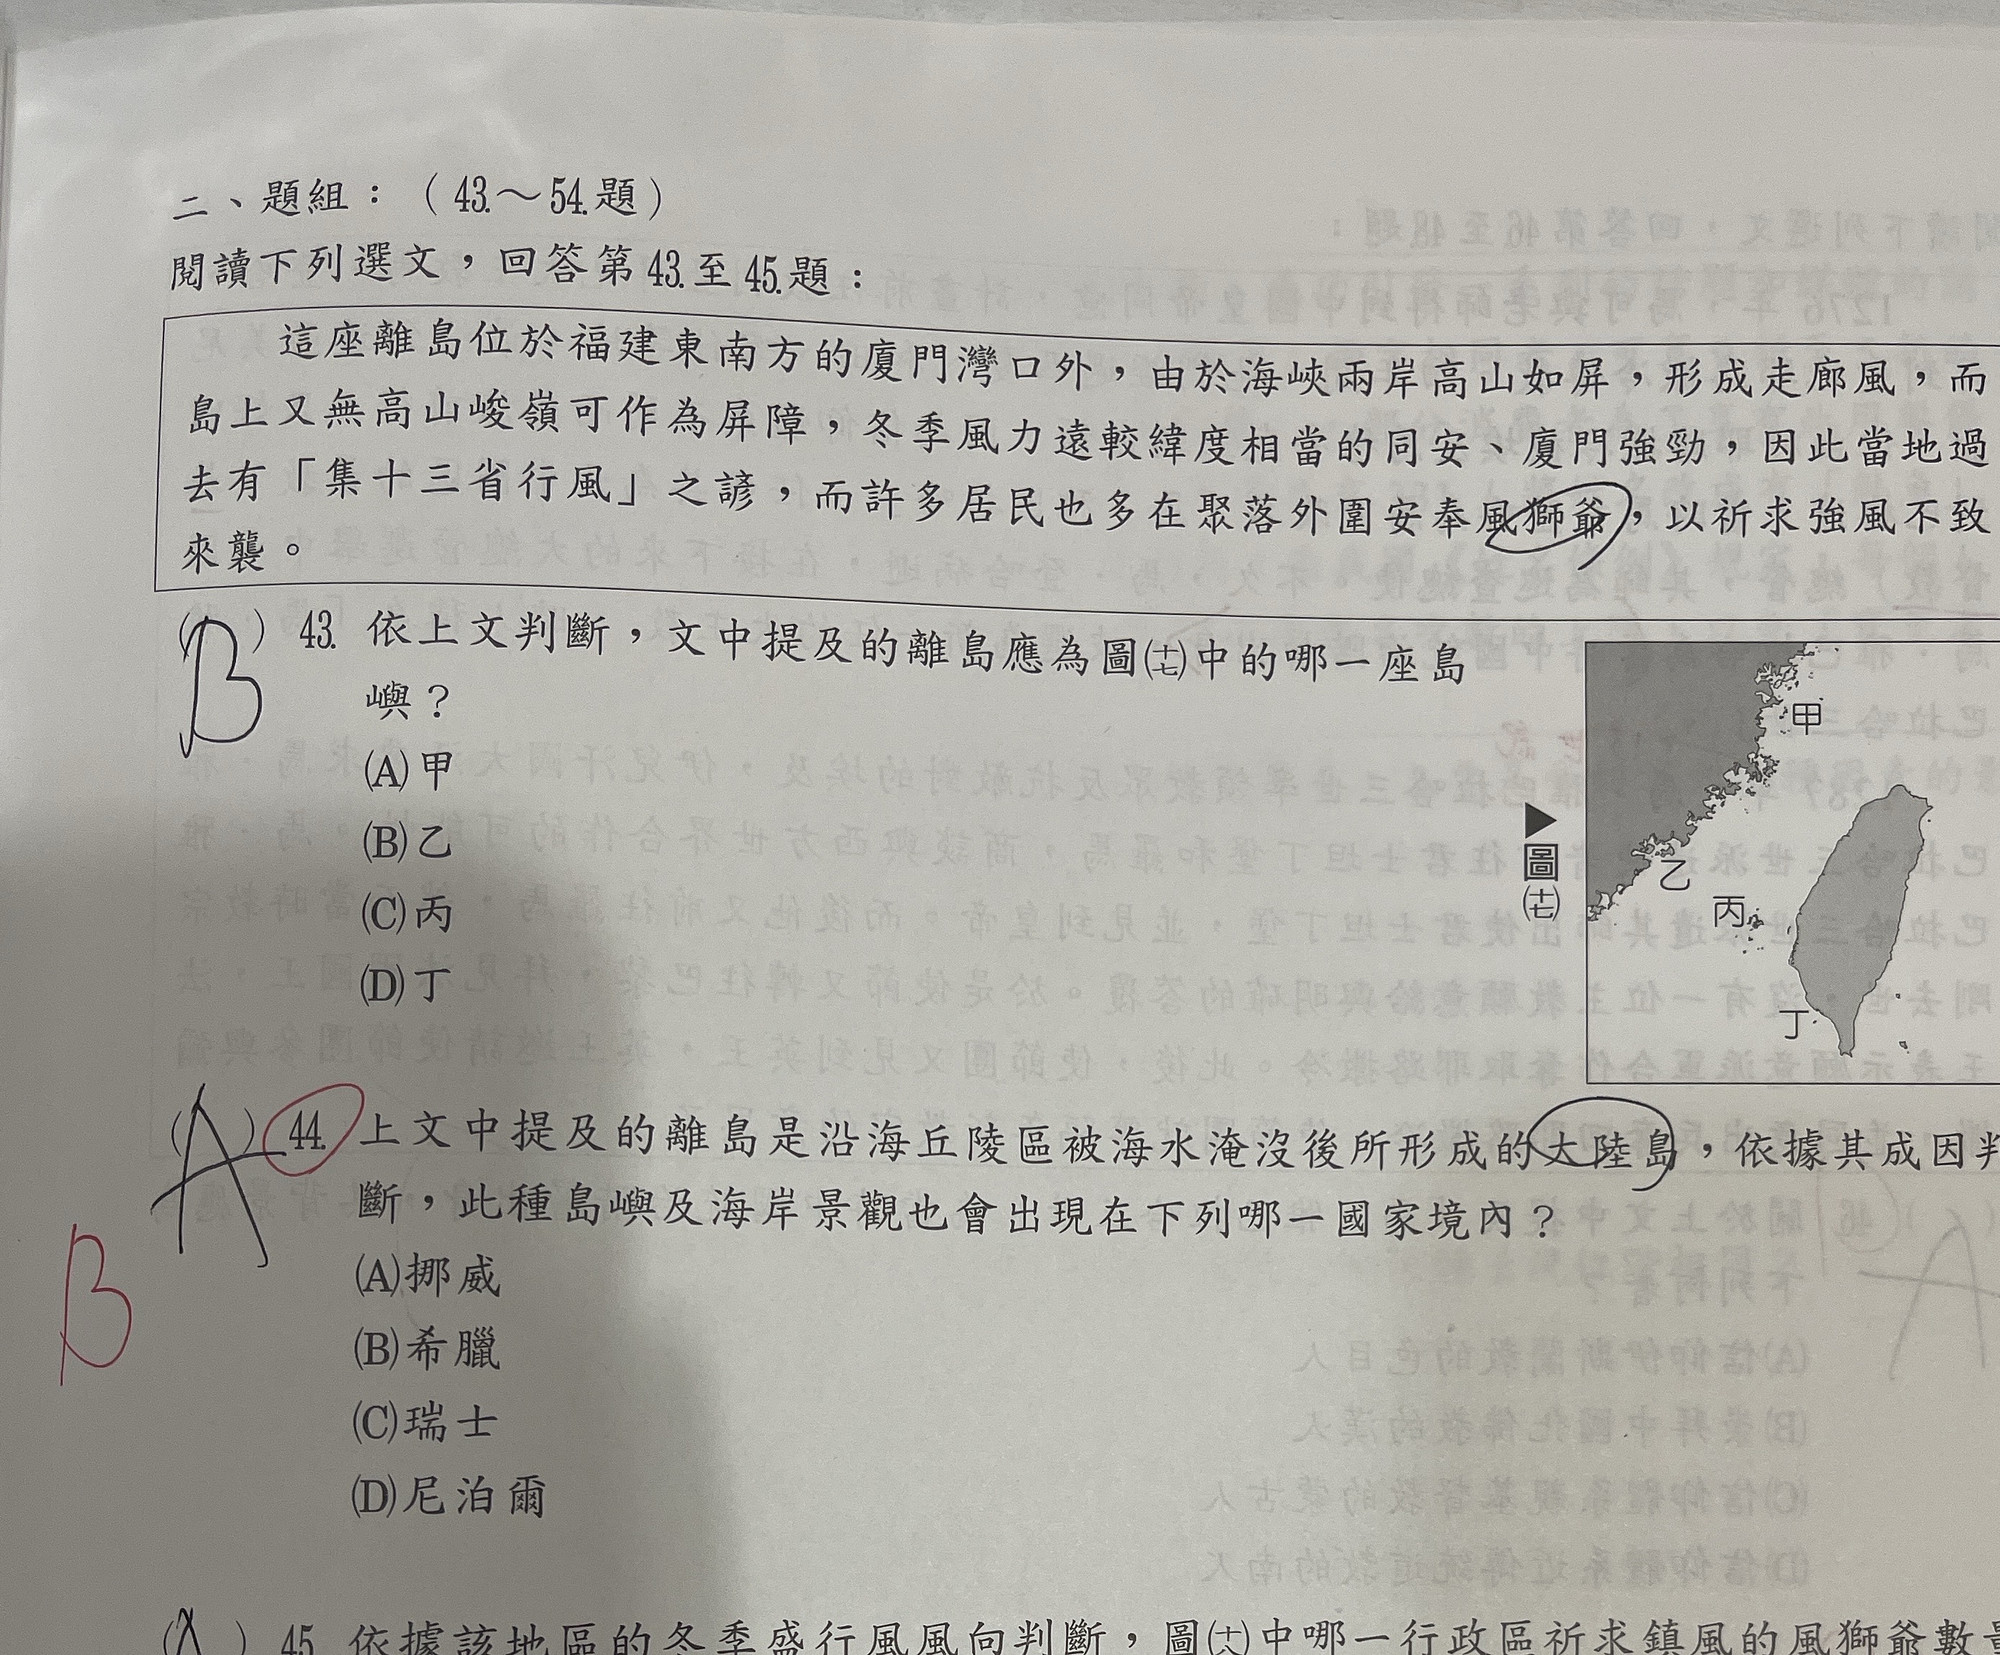 二、題組：（43.～54.題）
閱讀下列選文，回答第43.至45.題：
這座離島位於福建東南方的廈門灣口外，由於海峽兩岸高山如屏，形成走廊風，而
島上又無高山峻嶺可作為屏障，冬季風力遠較緯度相當的同安、廈門強勁，因此當地過
去有「集十三省行風」之諺，而許多居民也多在聚落外圍安奉風獅爺，以祈求強風不致
來襲。
(B) 43. 依上文判斷，文中提及的離島應為圖(十七)中的哪一座島
嶼？
(A)甲
(B)乙
(C)丙
(D)丁
甲
乙
丙
丁
▶圖(十七)
(A) 44. 上文中提及的離島是沿海丘陵區被海水淹沒後所形成的大陸島，依據其成因判
斷，此種島嶼及海岸景觀也會出現在下列哪一國家境內？
B
(A)挪威
(B)希臘
(C)瑞士
(D)尼泊爾
(A) 45. 依據該地區的冬季盛行風風向判斷，圖(十八)中哪一行政區祈求鎮風的風獅爺數量